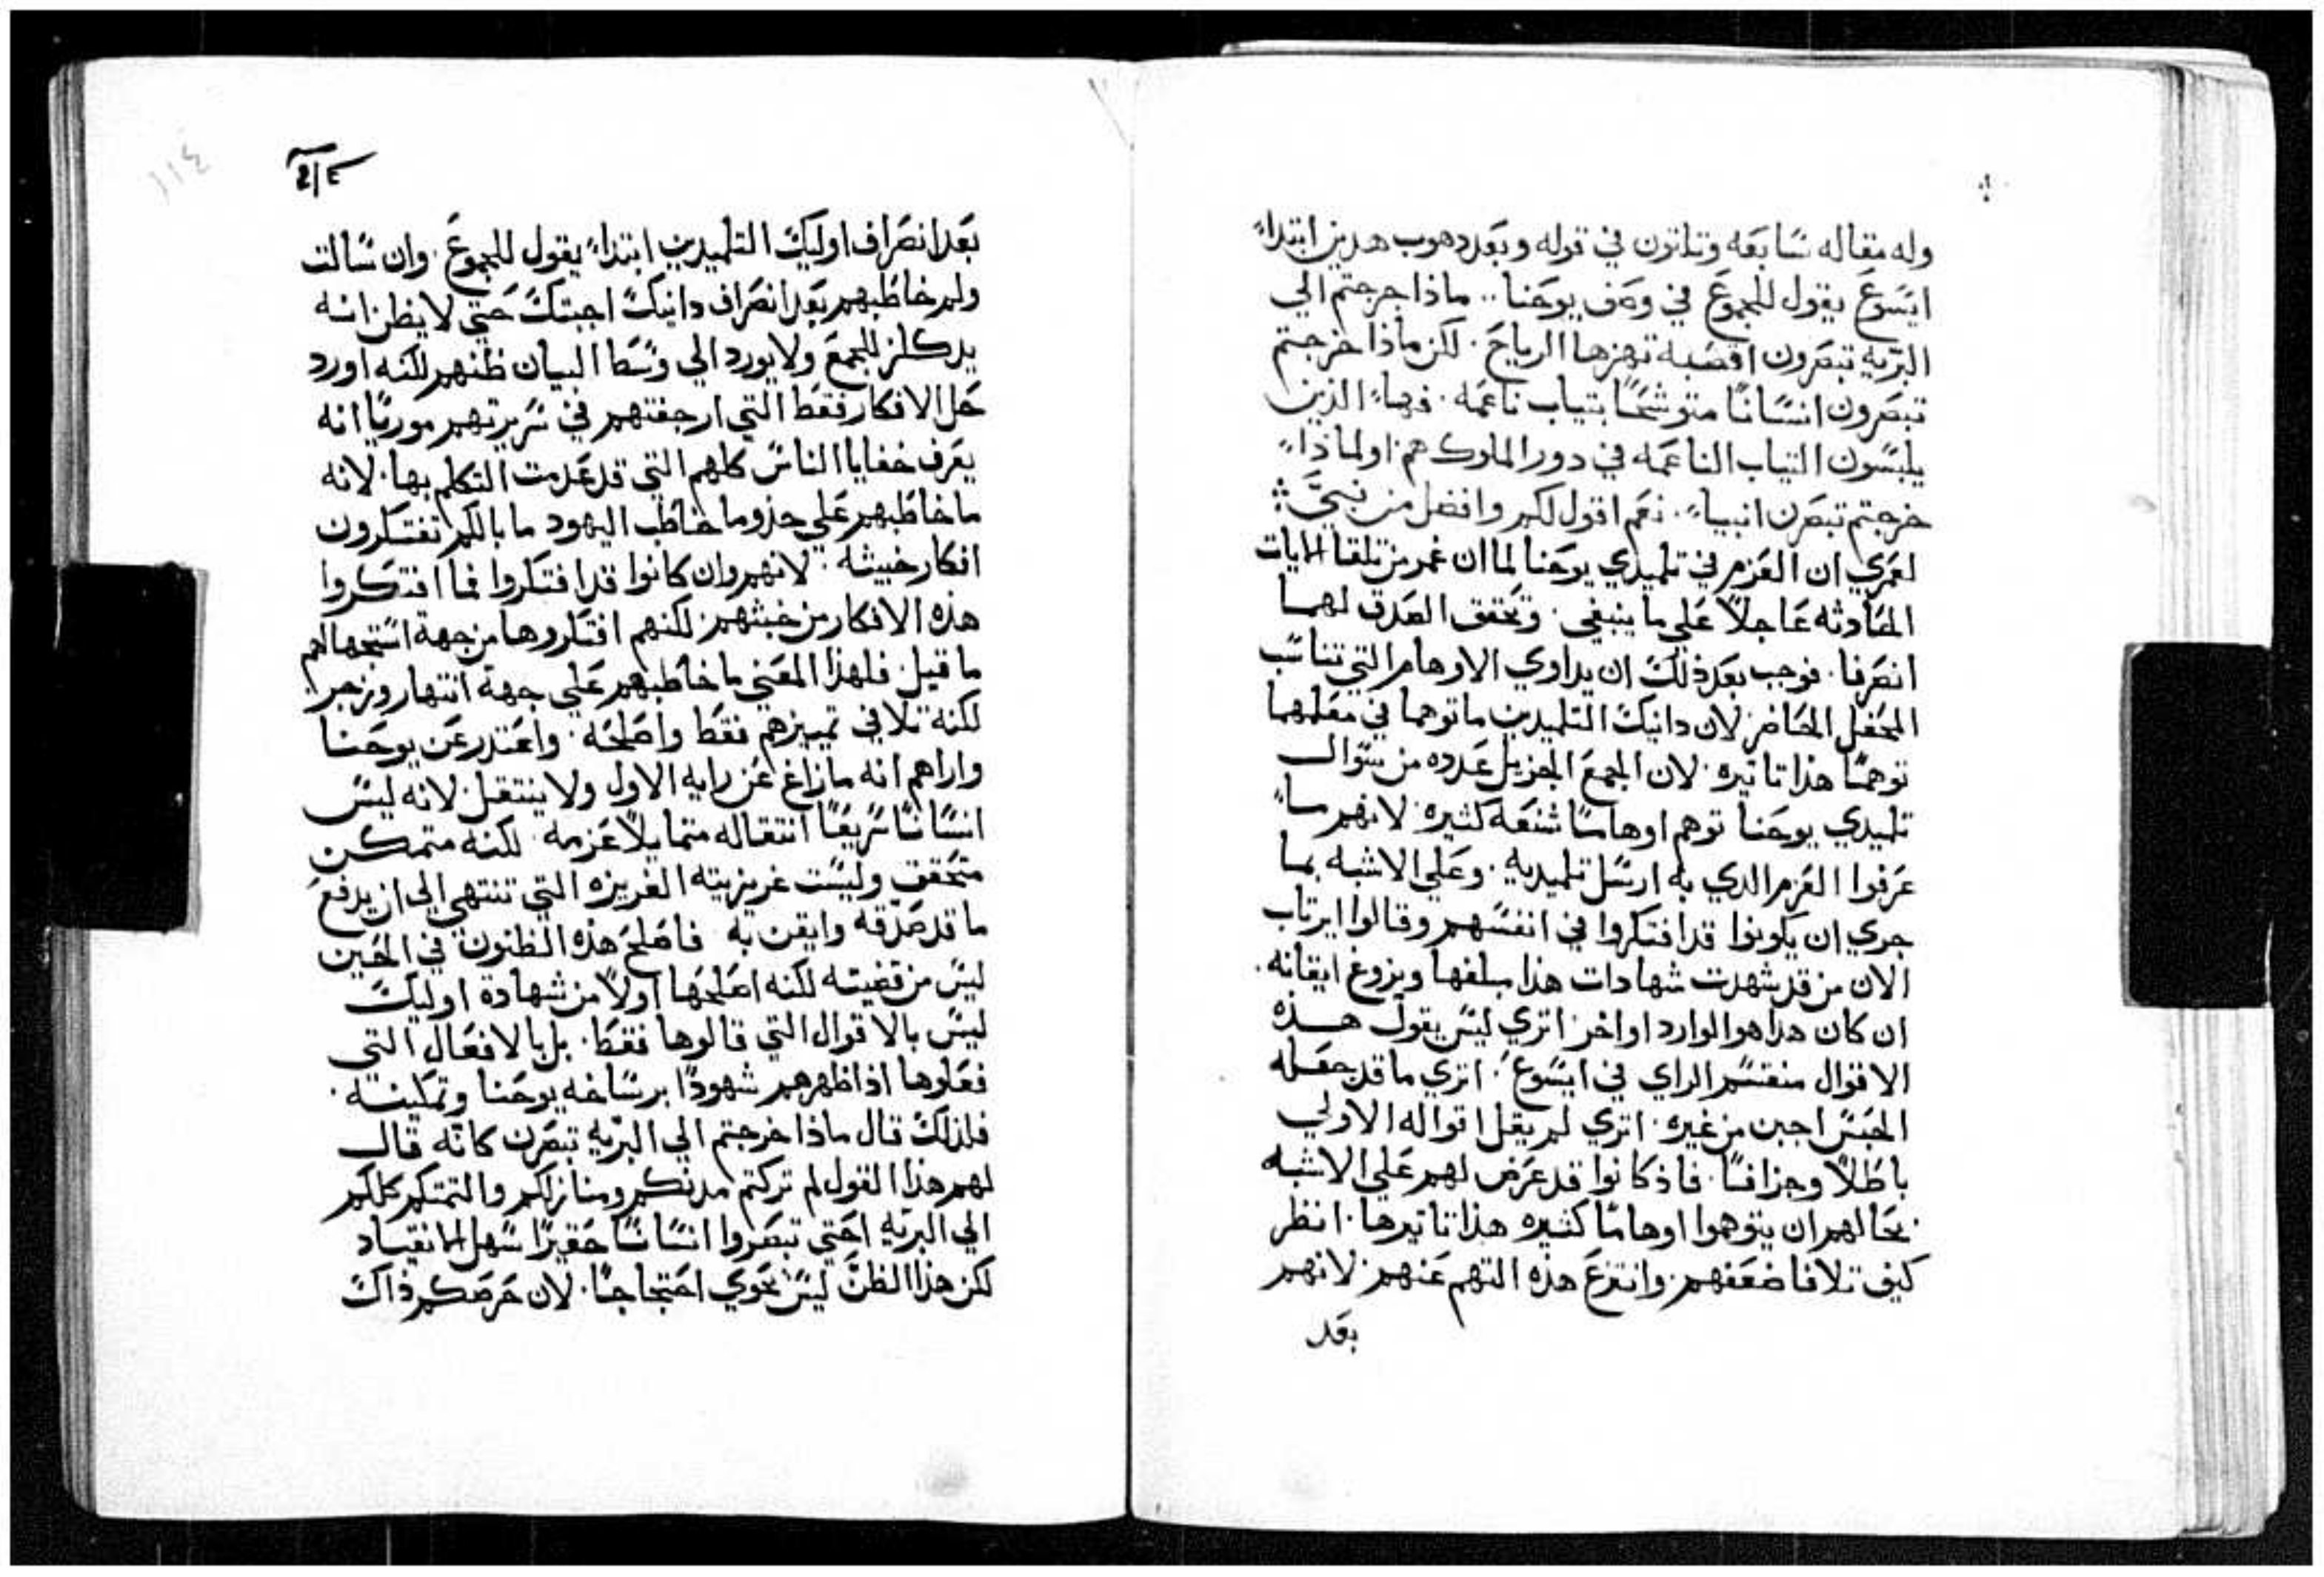 وله مقاله سابعه وتلاتون في قوله وبعد دهوب هدين ابتداء
ايسوع يقول للجموع في وصف يوحنا.. ماذا خرجتم الي
البريه تبصرون اقصبة تهزها الرياح. لكن ماذا خرجتم
تبصرون انسانا متوشحا بتياب ناعمه. فهاء الذين
يلبسون التياب الناعمه في دور الملوك هم. اولماذاء
خرجتم تبصرن انبياء. نعم اقول لكم وافضل من نبي
لعمري ان العزم في تلميدي يوحنا لما ان غمر من تلقا الايات
الحادثه عاجلا علي ما ينبغي. وتحقق الصدق لهما
انصرفا. فوجب بعد ذلك ان يداوي الاوهام التي تناسب
المحفل الحاضر لان دانيك التلميدين ماتوهما في معلمهما
توهما هذا تاتيره. لان الجمع الجزيل عدده من سوال
تلميدي يوحنا توهم اوهاما شنعه كثيره لانهم ماء
عرفوا العزم الدي به ارسل تلميديه. وعلي الاشبه بما
جري ان يكونوا قد افتكروا في انفسهم وقالوا ايرتاب
الان من قد شهدت شهادات هذا مبلغها ويزوغ ايقانه.
ان كان هدا هو الوارد او اخر. اتري ليس يقول هذه
الاقوال منقسم الراي في ايسوع. اتري ما قد جعله
الحبس اجبن من غيره. اتري لم يقل اقواله الاولي
باطلا وجزافا. فاذ كانوا قد عرض لهم علي الاشبه
بحالهم ان يتوهموا اوهاما كثيره هذا تاتيرها. انظر
كيف تلافا ضعفهم. وانتزع هذه التهم عنهم. لانهم
بعد
١١٤
بعد انصراف اوليك التلميدين ابتداء يقول للجموع. وان سالت
ولم خاطبهم بعد انصراف دانيك اجبتك حتي لا يظن انه
للجمع ولا يورد الي وسط البيان ظنهم لكنه اورد
حل الافكار فقط التي ارجفتهم في سريرتهم موريا انه
يعرف خفايا الناس كلهم التي قد عدمت التكلم بها. لانه
ما خاطبهم علي حذو ما خاطب اليهود ما بالكم تفتكرون
افكار خبيثه. لانهم وان كانوا قد افتكروا فما افتكروا
هذه الافكار من خبثهم. لكنهم افتكروها من جهة استجهالهم
ما قيل. فلهذا المعني ما خاطبهم علي جهة انتهار وزجر.
لكنه تلافي تمييزهم فقط واصلحه. واعتدر عن يوحنا
واراهم انه ما زاغ عن رايه الاول ولا ينتقل. لانه ليس
انسانا سريعا انتقاله متمايلا عزمه. لكنه متمكن
متحقق وليست غريزيته الغريزه التي تنتهي الي ان يدفع
ما قد صدقه وايقن به فاصلح هذه الظنون في الحين
ليس من قضيته لكنه اصلحها اولا من شهادة اوليك
ليس بالاقوال التي قالوها فقط. بل بالافعال التي
فعلوها اذ اظهرهم شهودا برساخه يوحنا وتمكينه.
فلذلك قال ماذا خرجتم الي البريه تبصرن كانه قال
لهم هذا القول لم تركتم مدنكم ومنازلكم والتمتكم كلكم
الي البريه احتي تبصروا انسانا حقيرا سهل الانقياد
لكن هذا الظن ليس يحوي احتجاجا. لان حرصكم ذاك